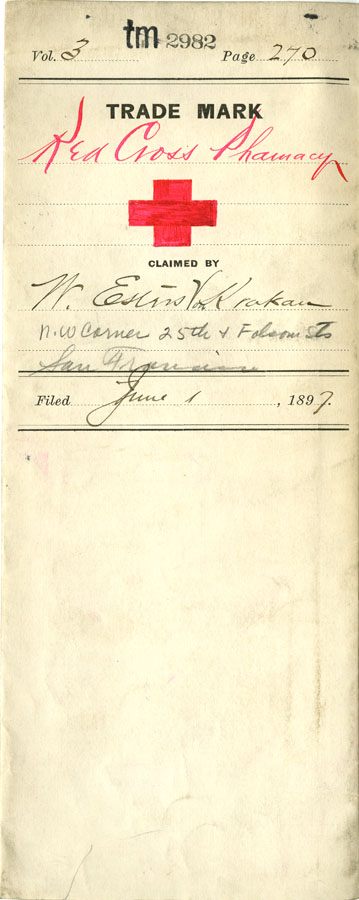 tm 2982
Vol. 3 Page 270
TRADE MARK
Red Cross Phamacy
CLAIMED BY
W. Estns Krakau
N.W Corner 25th & Folsom Sts
San Francisco
Filed June 1, 1897.